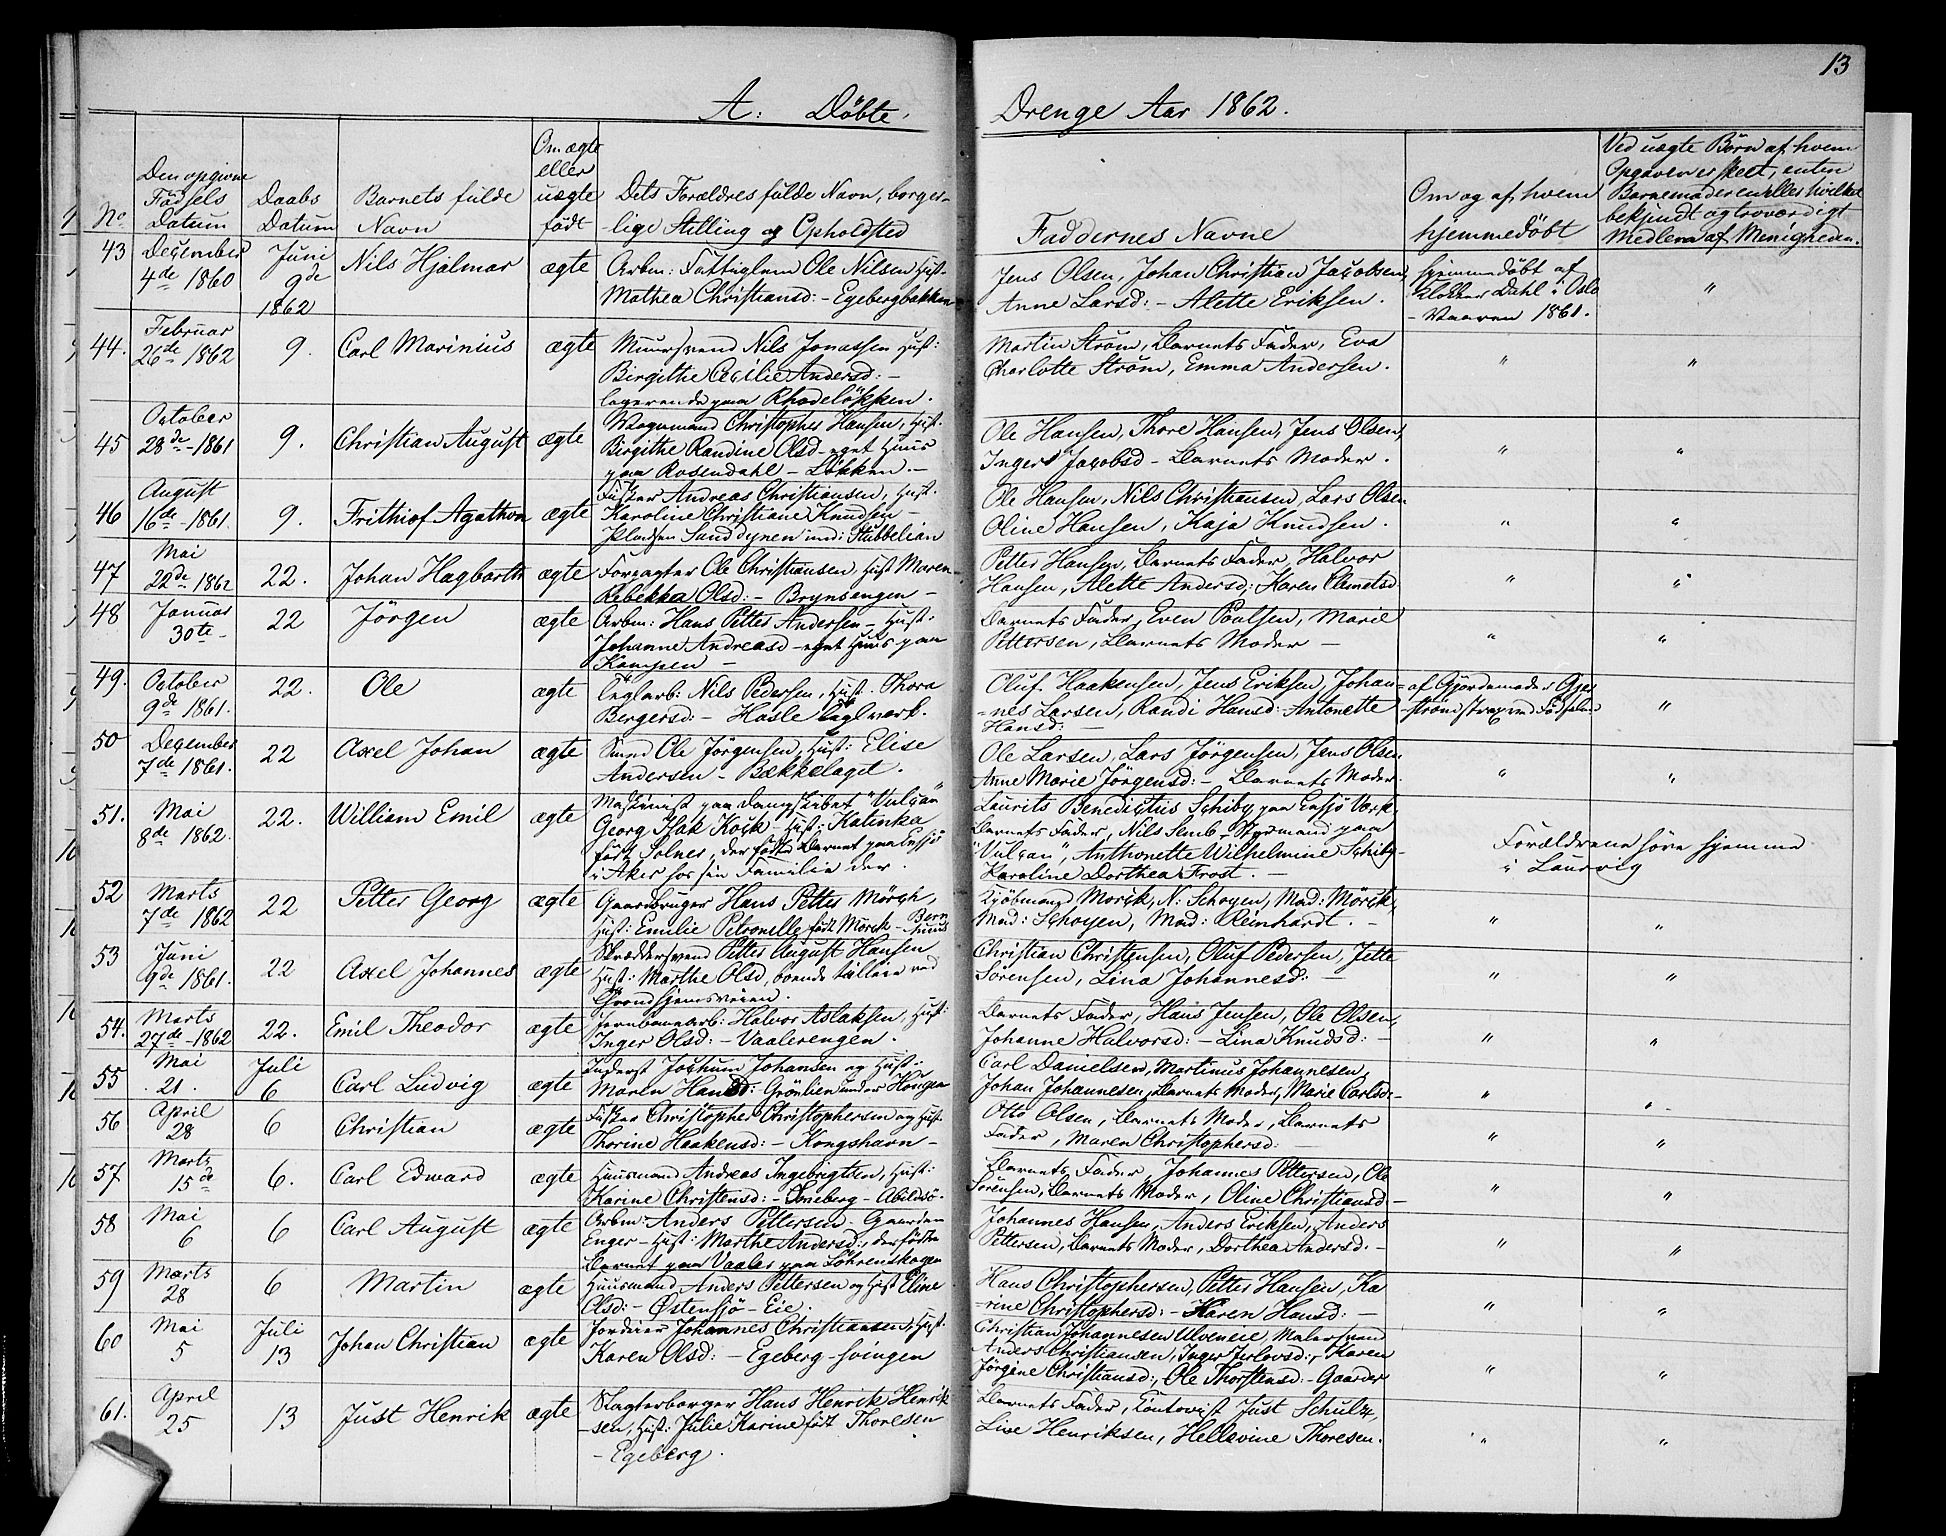 13
A: Döbte, Drenge Aar 1862.
No
Den opgivne Födsels Datum
Daabs Datum
Barnets fulde Navn
Om ægte eller uægte födt
Dets Forældres fulde Navn, borger-
-lige Stilling og Opholdsted
Faddernes Navne
Om og af hvem hjemmedöbt
Ved uægte Börn af hvem
Opgaven er skeet, enten
Barnemoderen eller hvilket
bekjendt og troværdigt
Medlem af Menigheden.
43 December 4de 1860 Juni 9de 1862 Nils Hjalmar ægte
Arbm: Fattiglem Ole Nilsen Hust.
Mathea Christiansd: - Egebergbakken
Jens Olsen, Johan Christian Jacobsen,
Anne Larsd: - Alette Eriksen.
hjemmedöbt af
Klokker Dahl i Oslo
- Vaaren 1861. "
44. Februar 26de 1862 9. Carl Marinius ægte
Muursvend Nils Jonassen Hust:
Birgithe Cecilie Andersd: -
logerende paa Rhodelökken.
Martin Ström, Barnets Fader, Eva
Charlotte Ström, Emma Andersen. " "
45 October 28de - 1861 9. Christian August ægte
Vognmand Christopher Hansen, Hust.
Birgithe Randine Olsd - eget Huus
paa Rosendahl - Lökken. -
Ole Hansen, Thore Hansen, Jens Olsen,
Inger Jacobsd - Barnets Moder. " "
46 August 16de - 1861. 9. Frithiof Agathon ægte
Fisker Andreas Christiansen, Hust.
Karoline Christiane Knudsen -
Pladsen Sanddynen und: Stubbelian
Ole Hansen, Nils Christiansen, Lars Olsen
Oline Hansen, Kaja Knudsen. " "
47 Mai 22de - 1862 22. Johan Hagbarth ægte
Forpagter Ole Christiansen, Hust Maren
Rebekka Olsd: - Brynsengen -
Petter Hansen, Barnets Fader, Halvor
Hansen, Alette Andersd; Karen Clemetsd " "
48 Januar 30te - 22 Jörgen ægte
Arbm: Hans Petter Andersen - Hust:
Johanne Andreasd - eget Huus paa
Kampen -
Barnets Fader, Even Poulsen, Marie
Pettersen, Barnets Moder - " "
49. October 9de 1861. 22. Ole ægte
Teglarb: Nils Pedersen, Hust. Thora
Bergersd: - Hasle Teglverk.
Oluf Haakensen, Jens Eriksen, Johan-
-nes Larsen, Randi Hansd: Antonette
Hansd: -
af Gjordemoder Gjer-
-ström strax ved Födselen "
50 December 7de 1861. 22 Axel Johan ægte
Smed Ole Jörgensen, Hust: Elise
Andersen - Bækkelaget.
Ole Larsen, Lars Jörgensen, Jens Olsen
Anne Marie Jörgensd: - Barnets Moder. " "
51. Mai 8de 1862. 22. William Emil ægte
Maskinist paa Dampskibet "Vulcan"
Georg Isak Kock - Hust: Katinka
födt Solnes, der födte Barnet paa Ensjö
i Aker hos sin Familie der
Laurits Benedictus Schiby paa Ensjö Værk,
Barnets Fader, Nils Semb - Styrmand paa
"Vulcan", Anthonette Wilhelmine Schiby-
Karoline Dorthea Frost. -
Forældrene höre hjemme
i Laurvig
52 Marts 7de 1862 22 Petter Georg ægte
Gaardbruger Hans Petter Mörch,
Hust: Emilie Petronelle födt Morck - Bern
huus
Kjöbmand Morck, N: Schoyen, Mad: Mörck,
Mad: Schoyen, Mad: Reinhardt. - " "
53 Juni 9de 1861. 22 Axel Johannes ægte
Skræddersvend Petter August Hansen
Hust: Marthe Olsd, boende tilleie ved
Trondhjemsveien.
Christian Christensen, Oluf Pedersen, Jette
Sörensen, Lina Johannesd: - " "
54. Marts 27de - 1862 22. Emil Theodor ægte
Jernbanearb: Halvor Aslaksen, Hust:
Inger Olsd: - Vaalerengen.
Barnets Fader, Hans Jensen, Ole Olsen,
Johanne Halvorsd: - Lina Knudsd: - " "
55 Mai 21. Juli 6 Carl Ludvig ægte
Inderst Jochum Johansen og Hust:
Maren Hansd: Grönlien under Hougen
Carl Danielsen, Martinus Johannesen,
Johan Johannesen, Barnets Moder, Marie Carlsd: " "
56 April 28 6 Christian ægte
Fisker Christopher Christophersen og Hust
Thorine Haakensd: - Kongshavn -
Otto Olsen, Barnets Moder, Barnets
Fader, Maren Christophersd: " "
57 Marts 15de 6. Carl Edward ægte
Huusmand Andreas Ingebrigtsen, Hust:
Karine Christensd: - Steneberg - Abildsö.
Barnets Fader, Johannes Pettersen, Ole
Sörensen, Barnets Moder, Oline Christiansd - " "
58 Mai 6 6 Carl August ægte
Arbm: Anders Pettersen - Gaarden
Enger - Hust: Marthe Andersd:, der födte
Barnet paa Vaaler paa Löhrenskogen
Johannes Hansen, Anders Eriksen, Anders
Pettersen, Barnets Moder, Dorthea Andersd. - " "
59 Marts 28 6 Martin ægte
Huusmand Anders Pettersen og Hust Eline
Olsd: - Østensjö - Eie.
Hans Christophersen, Petter Hansen, Ka
-rine Christophersd: - Karen Hansd: - " "
60 Mai 5 Juli 13 Johan Christian ægte
Jordeier Johannes Christiansen, Hust.
Karen Olsd: - Egeberg - svingen
Christian Johannesen Ulveneie, Malersvend
Anders Christiansen, Inger Torlovsd:, Karen
Jörgine Christiansd:, Ole Thorstensd: - Gaarder " "
61. April 25 13 Just Henrik ægte
Slagterborger Hans Henrik Henrik-
-sen, Hust: Julie Karine födt Thoresen
- Egeberg.
Barnets Fader, Contorist Just Schultz,
Lise Henriksen, Hellevine Thoresen. " "